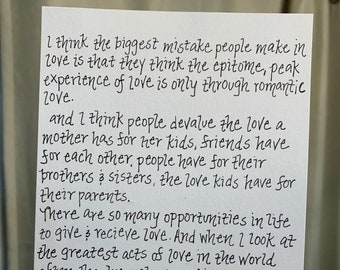 I think the biggest mistake people make in
love is that they think the epitome, peak
experience of love is only through romantic
love.
and I think people devalue the love a
mother has for her kids, friends have
for each other, people have for their
brothers & sisters, the love kids have for
their parents.
There are so many opportunities in life
to give & recieve love. And when I look at
the greatest acts of love in the world